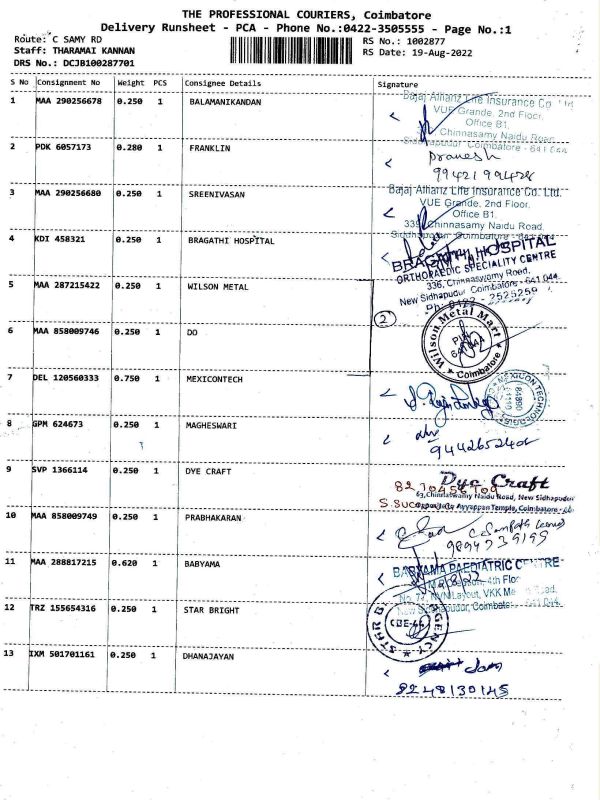 THE PROFESSIONAL COURIERS, Coimbatore
Delivery Runsheet - PCA - Phone No.:0422-3505555 - Page No.:1
Route: C SAMY RD
RS No.: 1002877
Staff: THARAMAI KANNAN
RS Date: 19-Aug-2022
DRS No.: DCJB100287701
S No Consignment No Weight PCS Consignee Details Signature
1 MAA 290256678 0.250 1 BALAMANIKANDAN
Bajaj Allianz Life Insurance Co. Ltd
VUE Grande, 2nd Floor,
Office B1,
Chinnasamy Naidu Road
Coimbatore - 641 044
2 PDK 6057173 0.280 1 FRANKLIN
Pranesh
3 MAA 290256680 0.250 1 SREENIVASAN
Bajaj Allianz Life Insurance Co. Ltd.
VUE Grande, 2nd Floor,
Office B1,
339, Chinnasamy Naidu Road,
4 KDI 458321 0.250 1 BRAGATHI HOSPITAL
BRAGATHI HOSPITAL
ORTHOPAEDIC SPECIALITY CENTRE
336, Chinnaswamy Road,
New Sidhapudur, Coimbatore - 641 044
Ph: 0422 - 2525259
5 MAA 287215422 0.250 1 WILSON METAL
2
Wilson Metal Mart
Coimbatore
6 MAA 858009746 0.250 1 DO
7 DEL 120560333 0.750 1 MEXICONTECH
8 GPM 624673 0.250 1 MAGHESWARI
9 SVP 1366114 0.250 1 DYE CRAFT
Dye Craft
63, Chinnaswamy Naidu Road, New Sidhapudur
Ayyappan Temple, Coimbatore
10 MAA 858009749 0.250 1 PRABHAKARAN
9894739199
11 MAA 288817215 0.620 1 BABYAMA
BABYAMA PAEDIATRIC CENTRE
4th Floor
Layout, VKK Menon Road,
New Siddhapudur, Coimbatore - 641 044
12 TRZ 155654316 0.250 1 STAR BRIGHT
13 IXM 501701161 0.250 1 DHANAJAYAN
8248130145